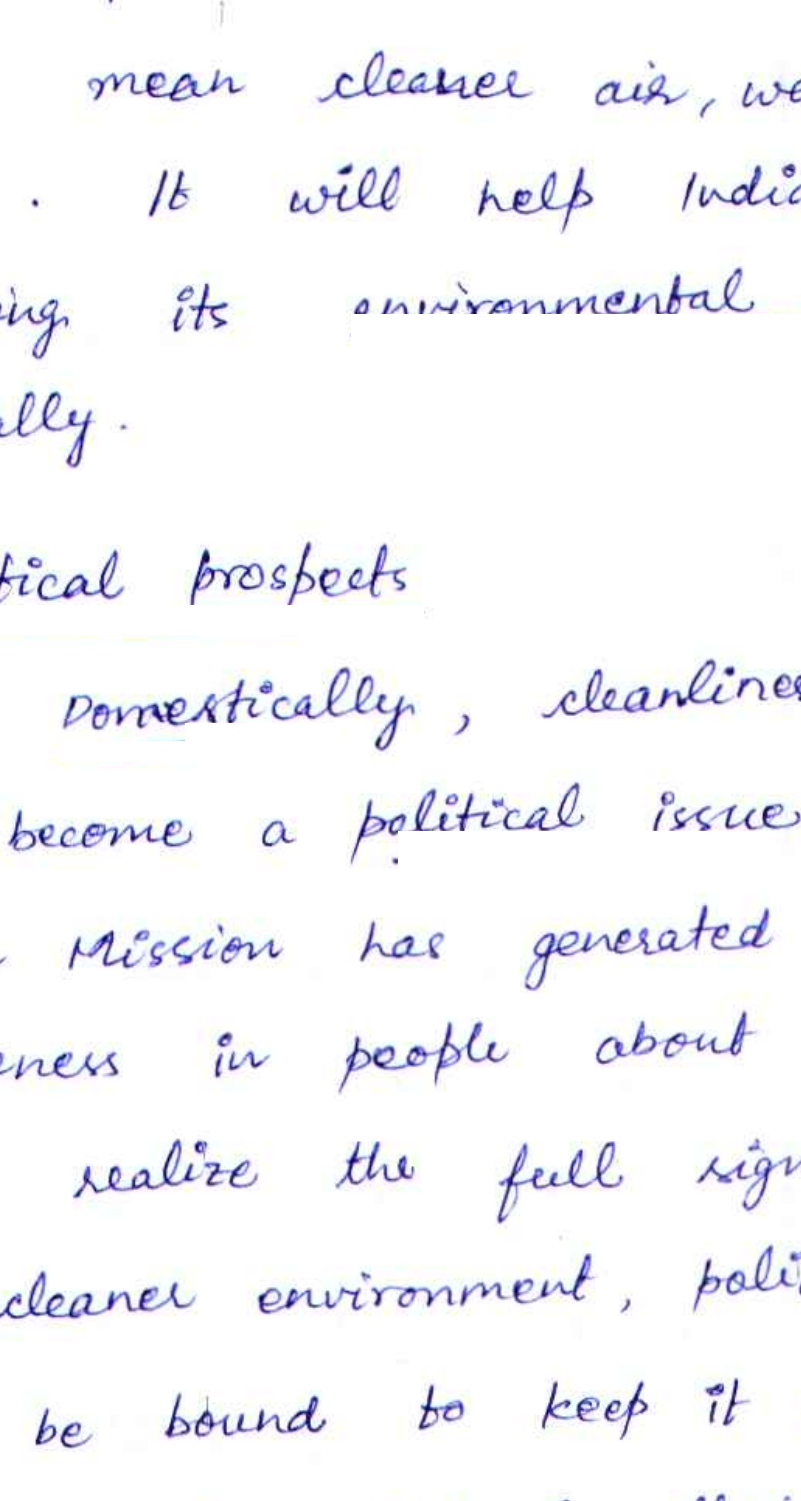 mean cleaner air, we
. It will help Indi
ing its environmental
ally.
tical prospects
Domestically, cleanlines
become a political issue
Mission has generated
eness in people about
realize the full sign
cleaner environment, poli
be bound to keep it